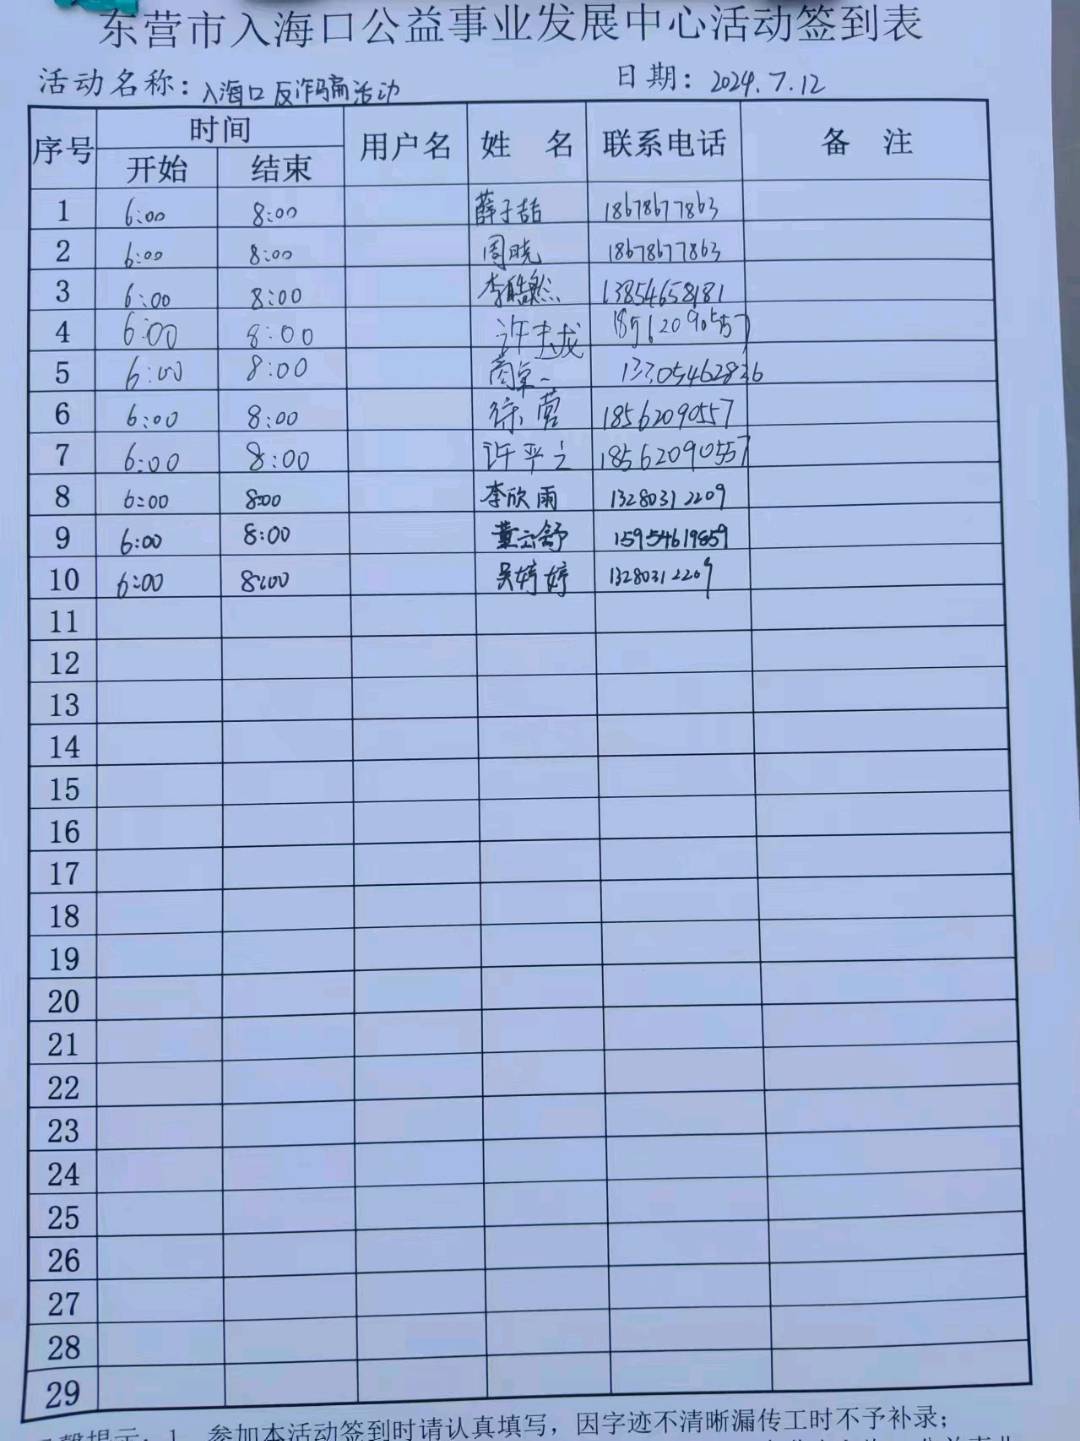 东营市入海口公益事业发展中心活动签到表
活动名称：入海口反诈骗活动 日期：2024.7.12
序号 时间 用户名 姓 名 联系电话 备 注
开始 结束
1 6:00 8:00 薛子喆 18678677863
2 6:00 8:00 周晓 18678677863
3 6:00 8:00 李皓然 13854658181
4 6:00 8:00 许 18562090557
5 6:00 8:00
6 6:00 8:00 徐营 18562090557
7 6:00 8:00 许平之 18562090557
8 6:00 8:00 李欣雨 13280312209
9 6:00 8:00 董云舒 15954619859
10 6:00 8:00 吴婷婷 13280312209
11
12
13
14
15
16
17
18
19
20
21
22
23
24
25
26
27
28
29
提示：1、参加本活动签到时请认真填写，因字迹不清晰漏传工时不予补录；